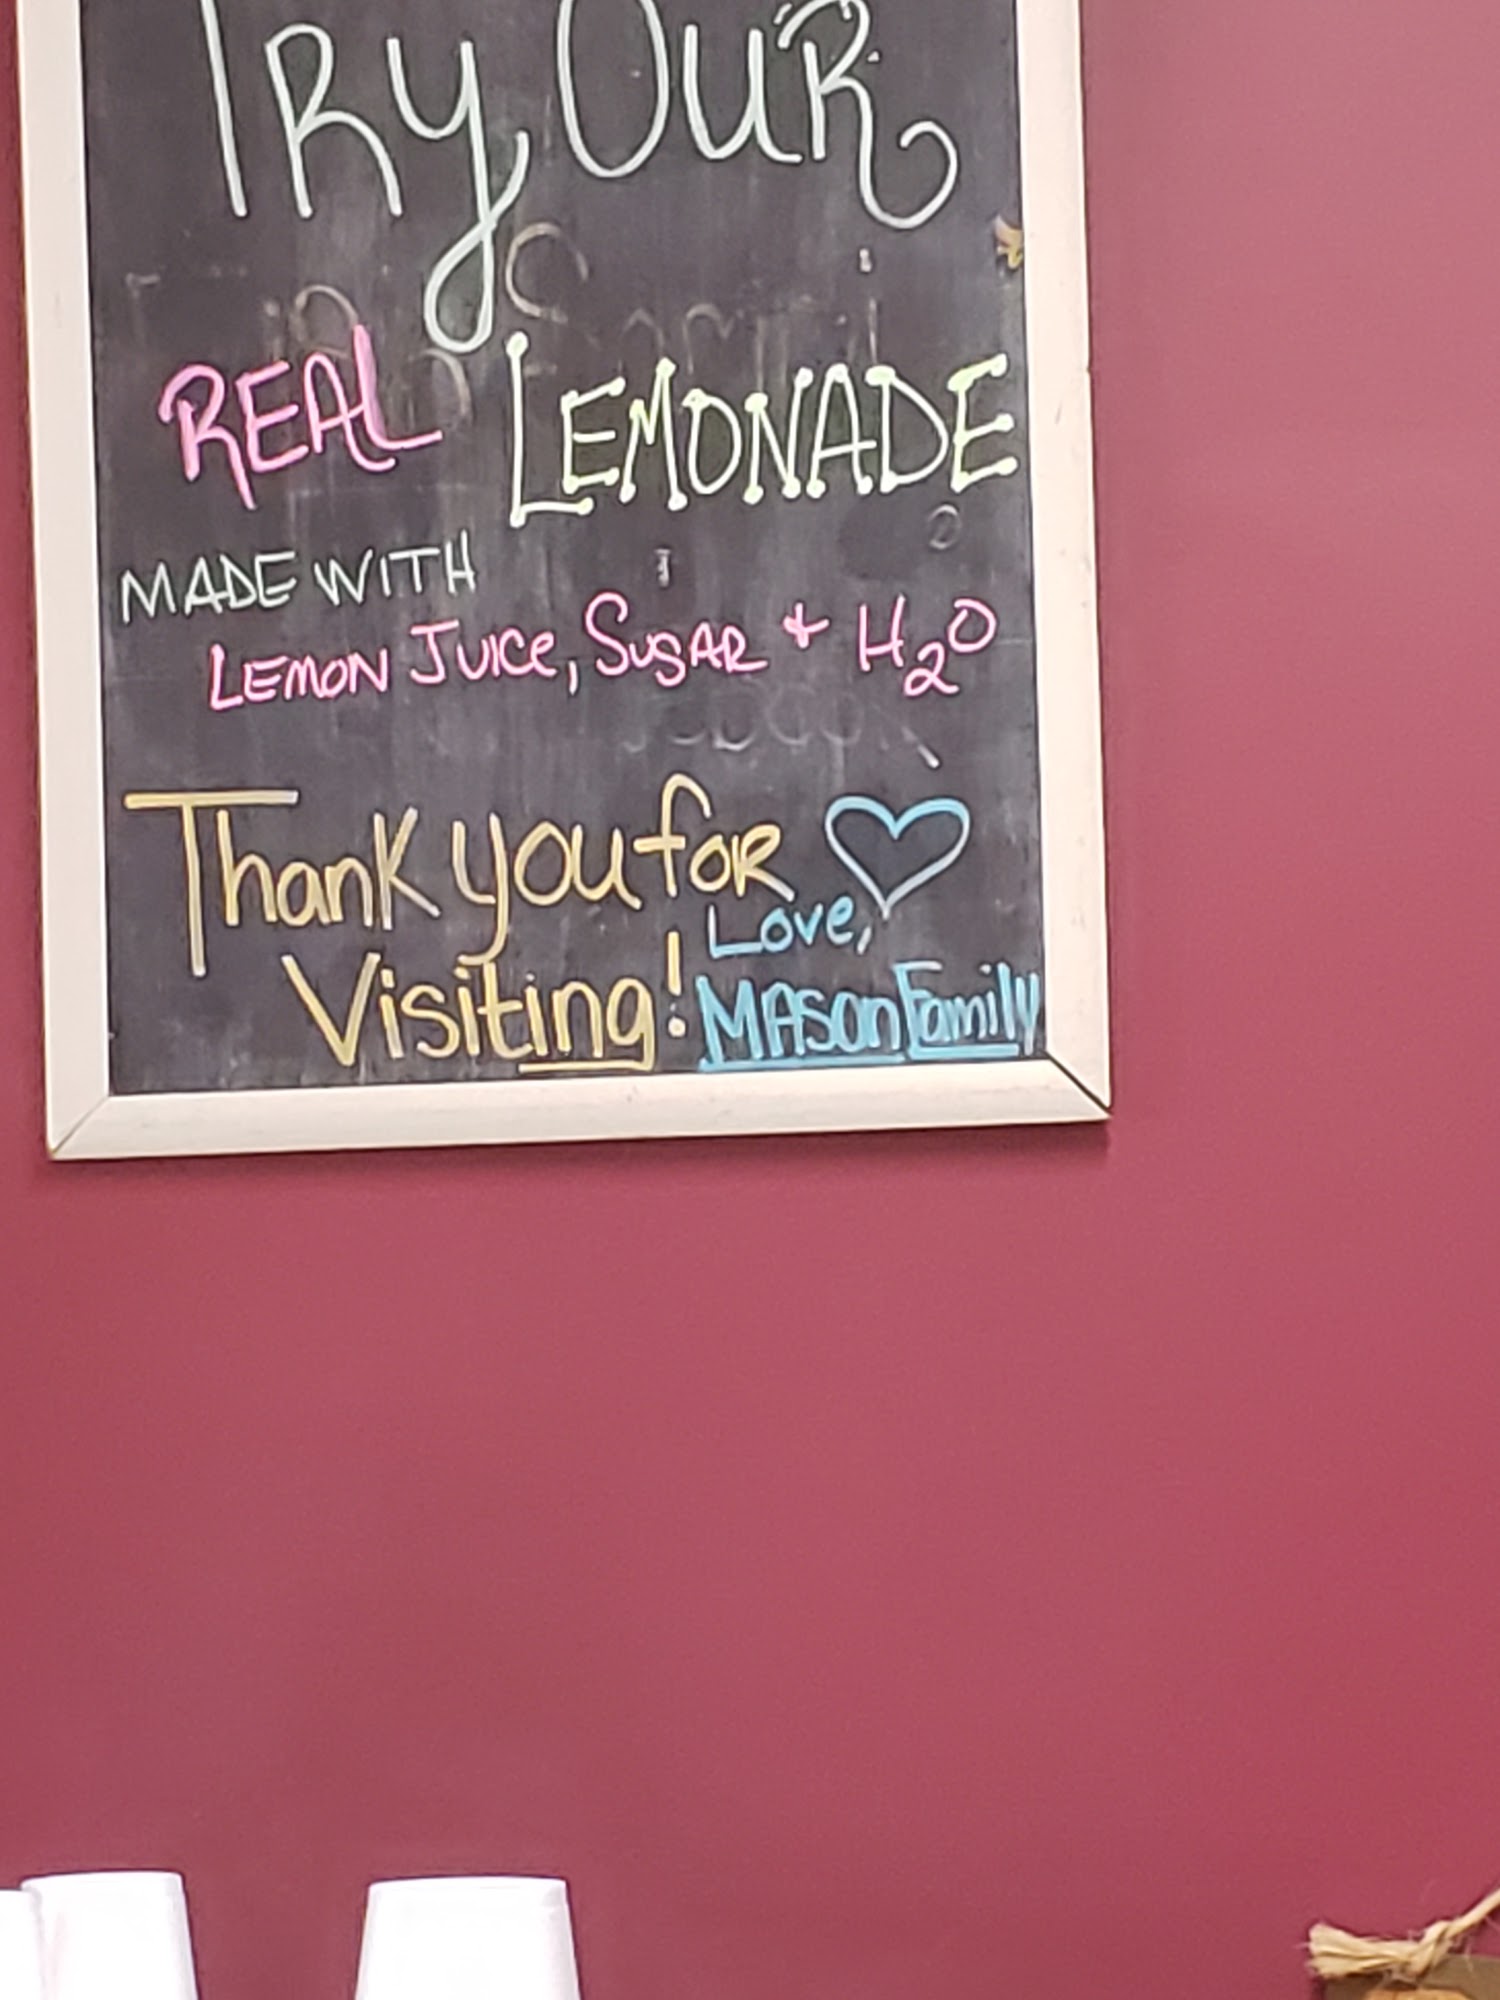 Try Our
REAL LEMONADE
MADE WITH
LEMON JUICE, SUGAR + H2O
Thank you for
Visiting!
Love,
MASon Family